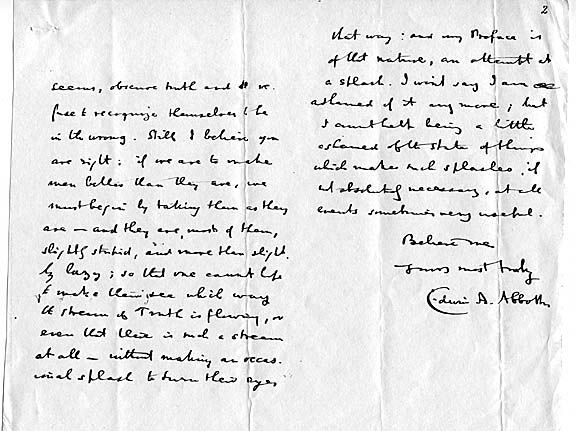 seems, obscure truth and re-
fuse to recognize themselves to be
in the wrong. Still I believe you
are right: if we are to make
men better than they are, we
must begin by taking them as they
are — and they are, most of them,
slightly stupid, and more than slight-
ly lazy; so that one cannot hope
to make them see which way
the stream of Truth is flowing, or
even that there is such a stream
at all — without making an occas-
ional splash to turn their eyes
2
that way: and my Preface is
of that nature, an attempt at
a splash. I won't say I am
ashamed of it any more; but
I cannot help being a little
ashamed of the state of things
which make such splashes, if
not absolutely necessary, at all
events sometimes very useful.
Believe me
yours most truly
Edwin A. Abbott